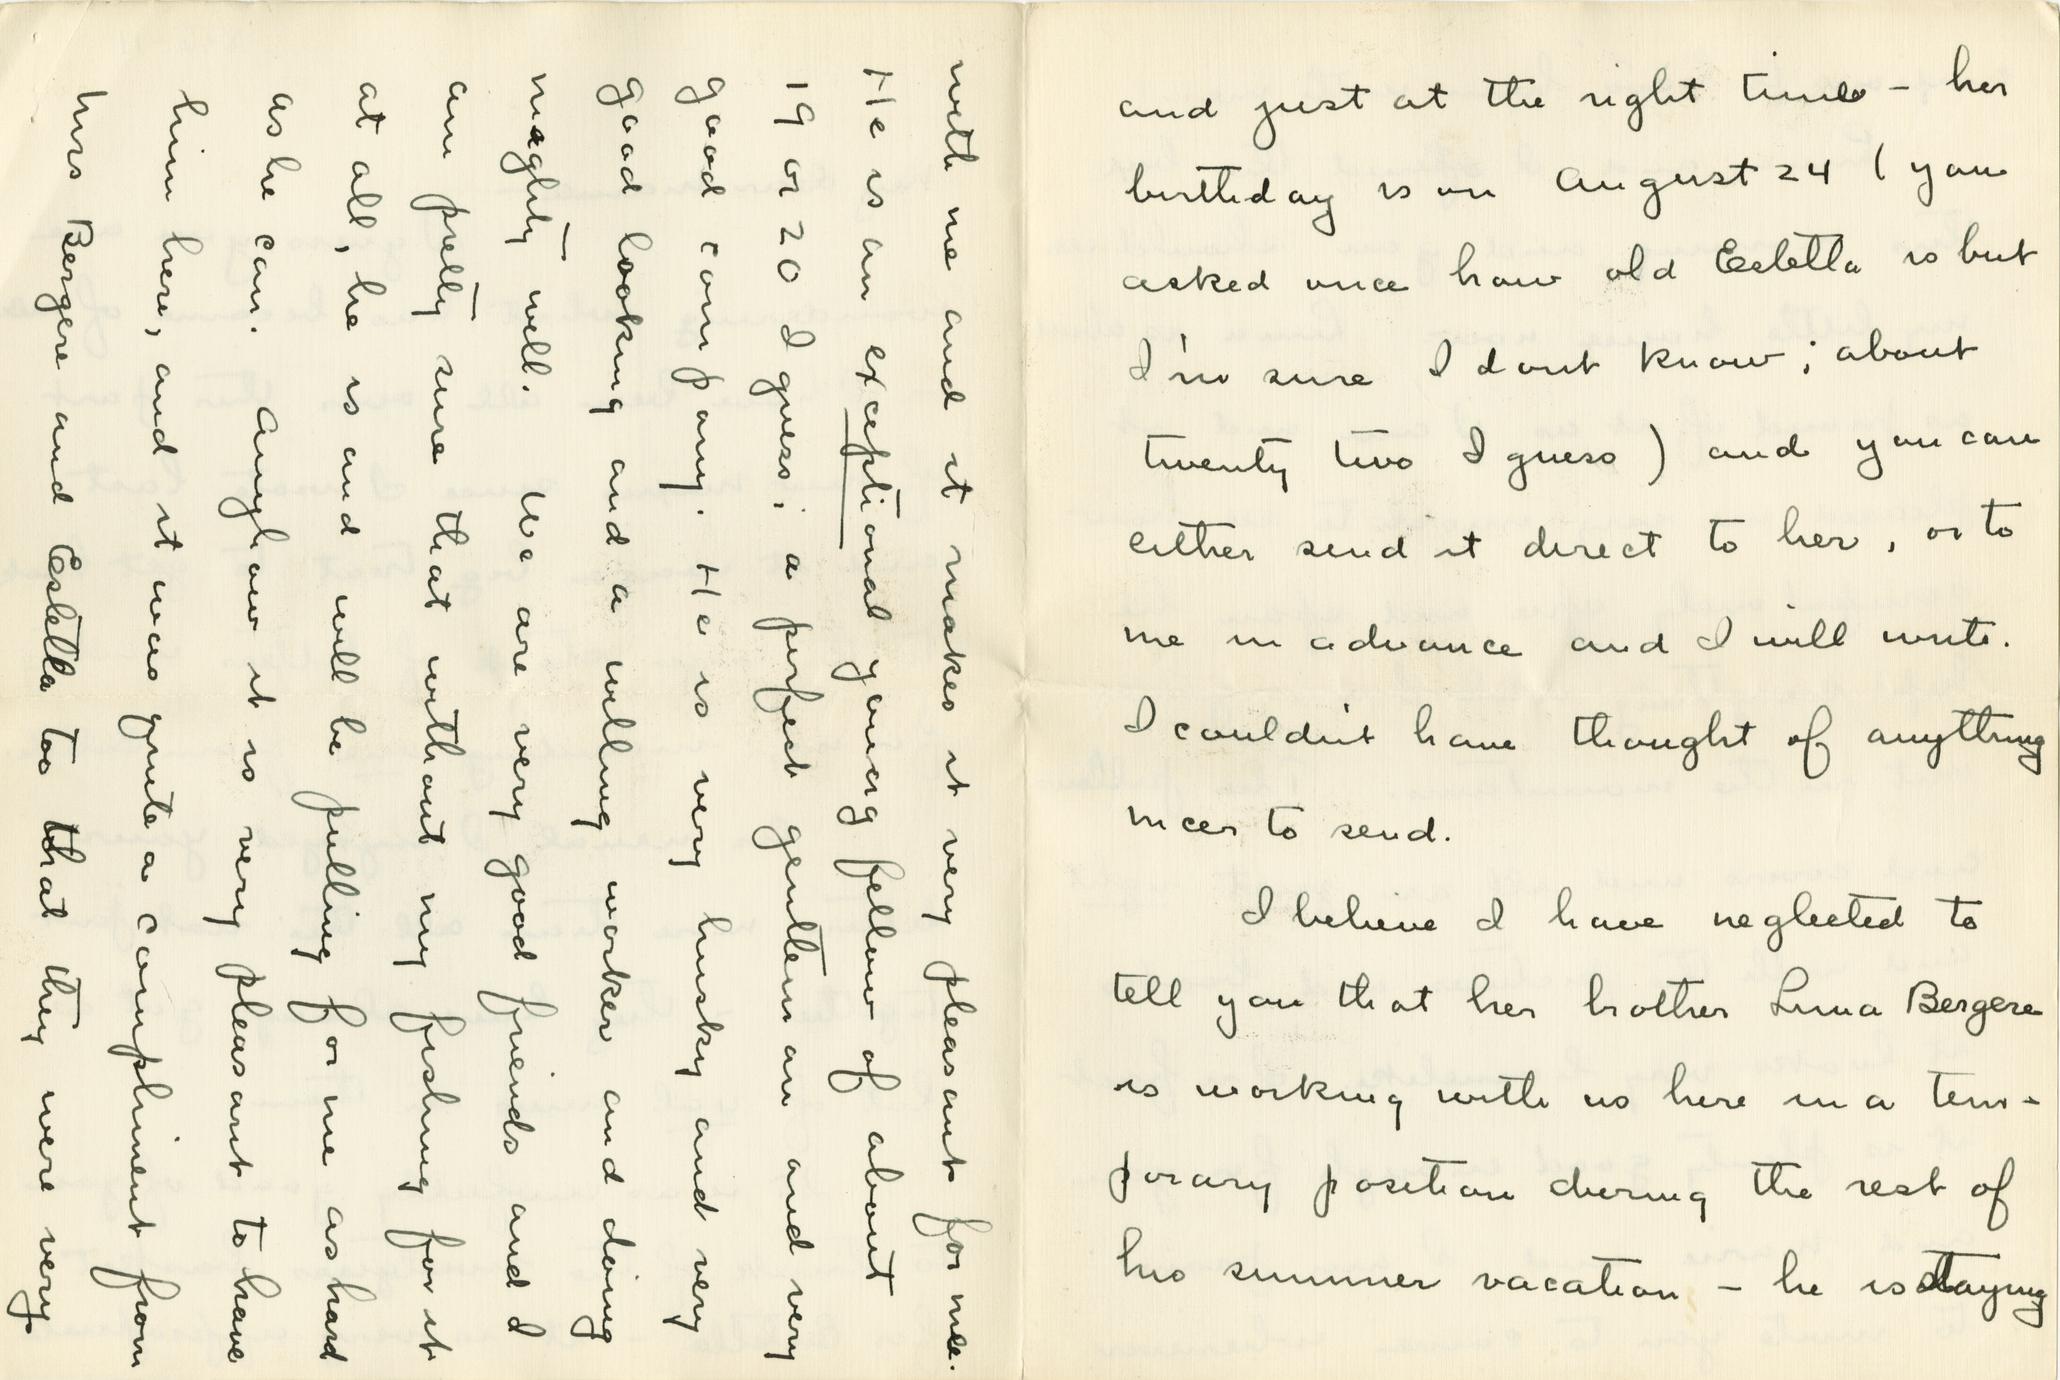 and just at the right time – her
birthday is on August 24 (you
asked once how old Estella is but
I'm sure I dont know; about
twenty two I guess) and you can
either send it direct to her, or to
me in advance and I will write.
I couldn't have thought of anything
nicer to send.
I believe I have neglected to
tell you that her brother Luna Bergere
is working with us here in a tem-
porary position during the rest of
his summer vacation – he is staying
with me and it makes it very pleasant for me.
He is an exceptional young fellow of about
19 or 20 I guess; a perfect gentleman and very
good company. He is very husky and very
good looking and a willing worker and doing
mighty well. We are very good friends and I
am pretty sure that without my fishing for it
at all, he is and will be pulling for me as hard
as he can. Anyhow it is very pleasant to have
him here, and it was quite a compliment from
Mrs Bergere and Estella too that they were very